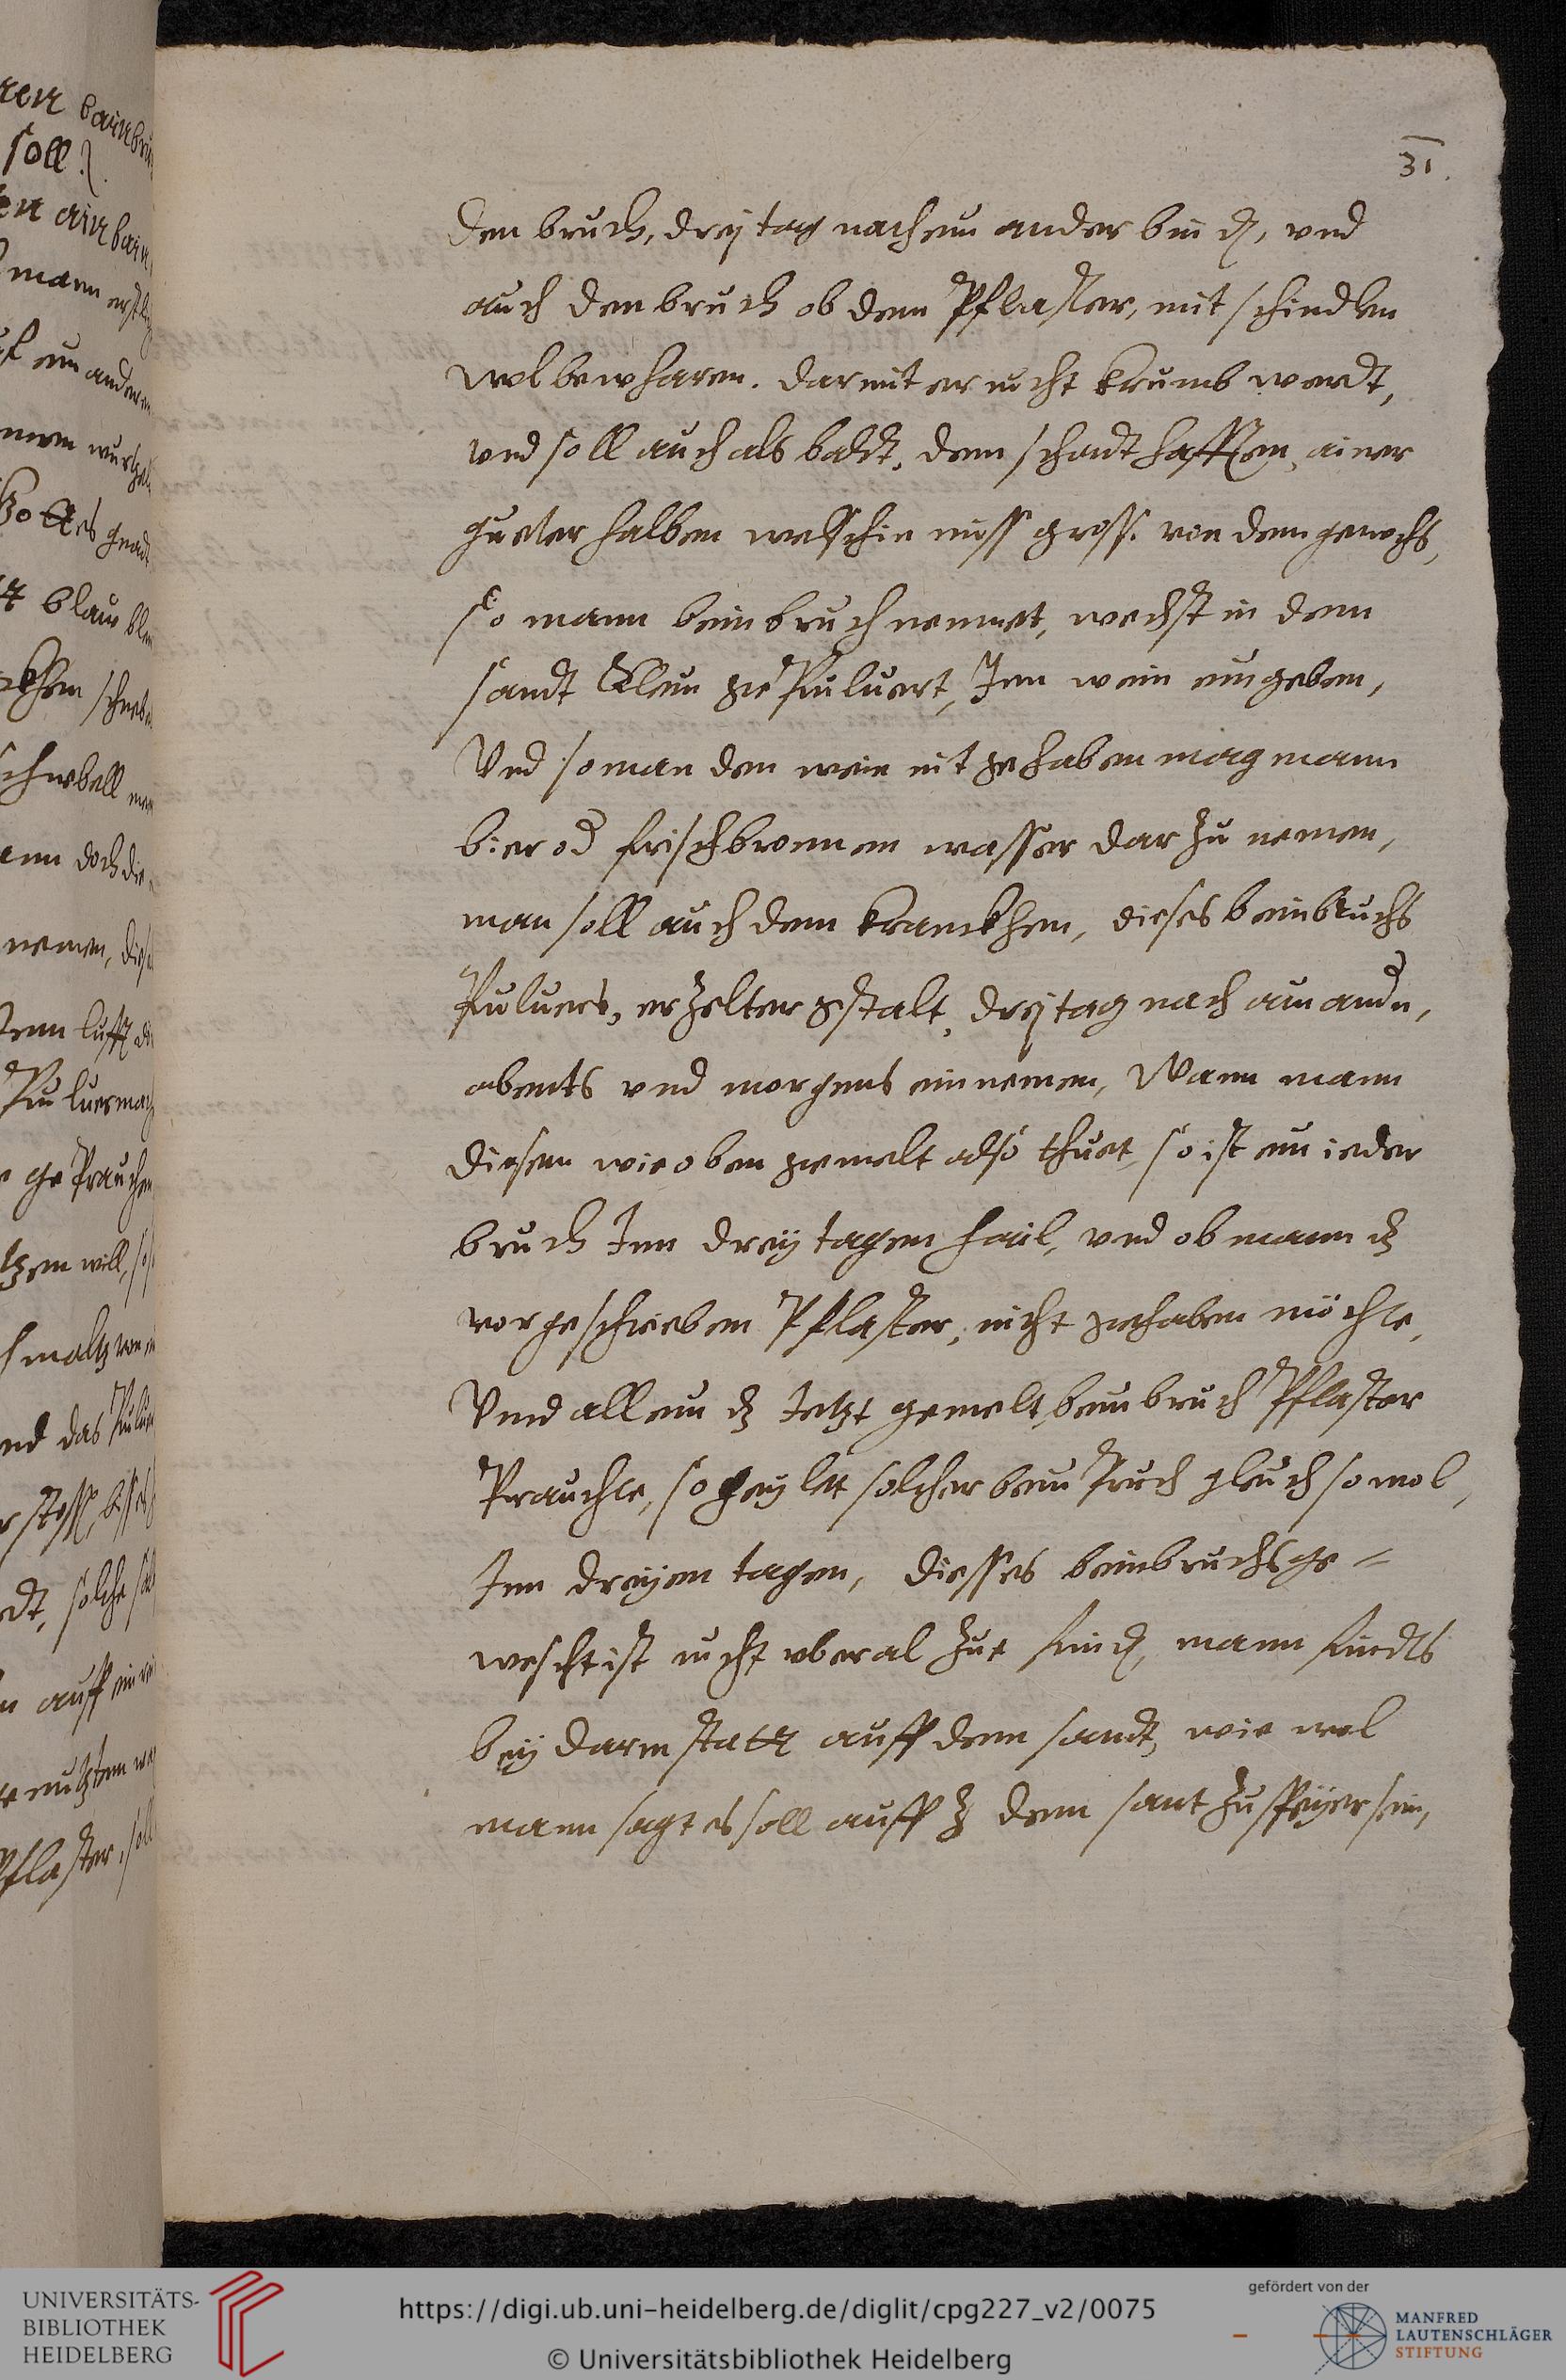 31.
den bruch, drej tag nach ein ander bind{en}, vnd
auch den bruch ob dem Pflaster, mit schindlen
wol bewharen. darmit er nicht krumb werdt,
vnd soll auch als baldt, dem schadthafften, ainer
gueter halben welschin nuss gross. von dem gewechs,
so mann beinbruch nennet, wechst in dem
sandt klein gepuluert, Jnn wein eingeben,
Vnd so man den wein nit gehaben mag mann
bier od frisch bronnen wasser dar zu nemen,
man soll auch dem kranckhen, dieses beinbruchs
Puluers, erzelter gstalt, drej tag nach ain andn,
abents vnd morgens einnemen, Wann mann
diesem wie oben gemelt also thuet, so ist ein ieder
bruch Jnn dreÿ tagen hail, vnd ob mann dz
vorgeschrieben Pflaster, nicht gehaben möchte,
Vnnd allein dz Jetzt gemelt, beinbruch Pflaster
Prauchte, so heylet solcher bein Pruch gleich so wol,
Jnn dreÿen tagen, diesses beinbruchs ge=
wechst ist nicht vberal zue find{en}, mann findts
beÿ darmstatt auff dem sandt, wie wol
mann sagt es soll auff dem sant zu speÿer sein,
UNIVERSITÄTS-
BIBLIOTHEK
HEIDELBERG
https://digi.ub.uni-heidelberg.de/diglit/cpg227_v2/0075
© Universitätsbibliothek Heidelberg
gefördert von der
MANFRED
LAUTENSCHLÄGER
STIFTUNG